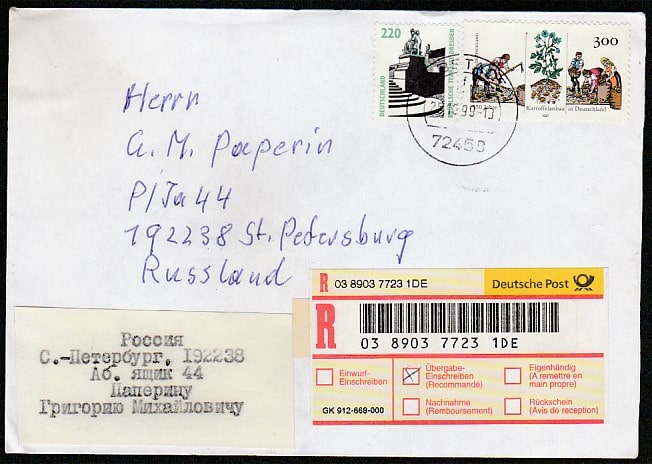 220
DEUTSCHLAND
300
Kartoffelanbau in Deutschland
99-13
72458
Herrn
G. M. Paperin
P/Ja 44
192238 St. Petersburg
Russland
R 03 8903 7723 1DE
Deutsche Post
R
03 8903 7723 1DE
Einwurf-
Einschreiben
Übergabe-
Einschreiben
(Recommandé)
Eigenhändig
(A remettre en
main propre)
Nachnahme
(Remboursement)
Rückschein
(Avis de reception)
GK 912-668-000
Россия
С.-Петербург, 192238
Аб. ящик 44
Паперину
Григорию Михайловичу